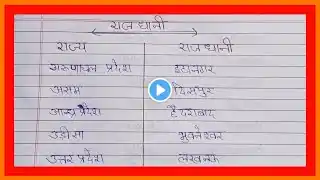 राजधानी
राज्य राजधानी
अरुणाचल प्रदेश इटानगर
असम दिसपुर
आन्ध्र प्रदेश हैदराबाद
उडीसा भुवनेश्वर
उत्तर प्रदेश लखनऊ